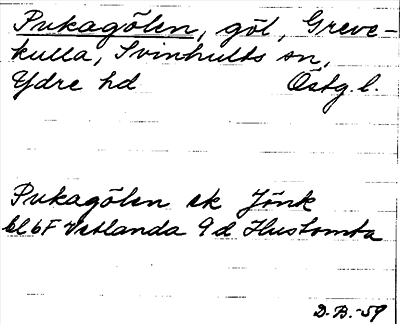 Pukagölen, göl, Greve-
kulla, Svinhults sn,
Ydre hd Östg. l.
Pukagölen ek Jönk
bl 6F Vetlanda 9d Hustomta
D.B.-59